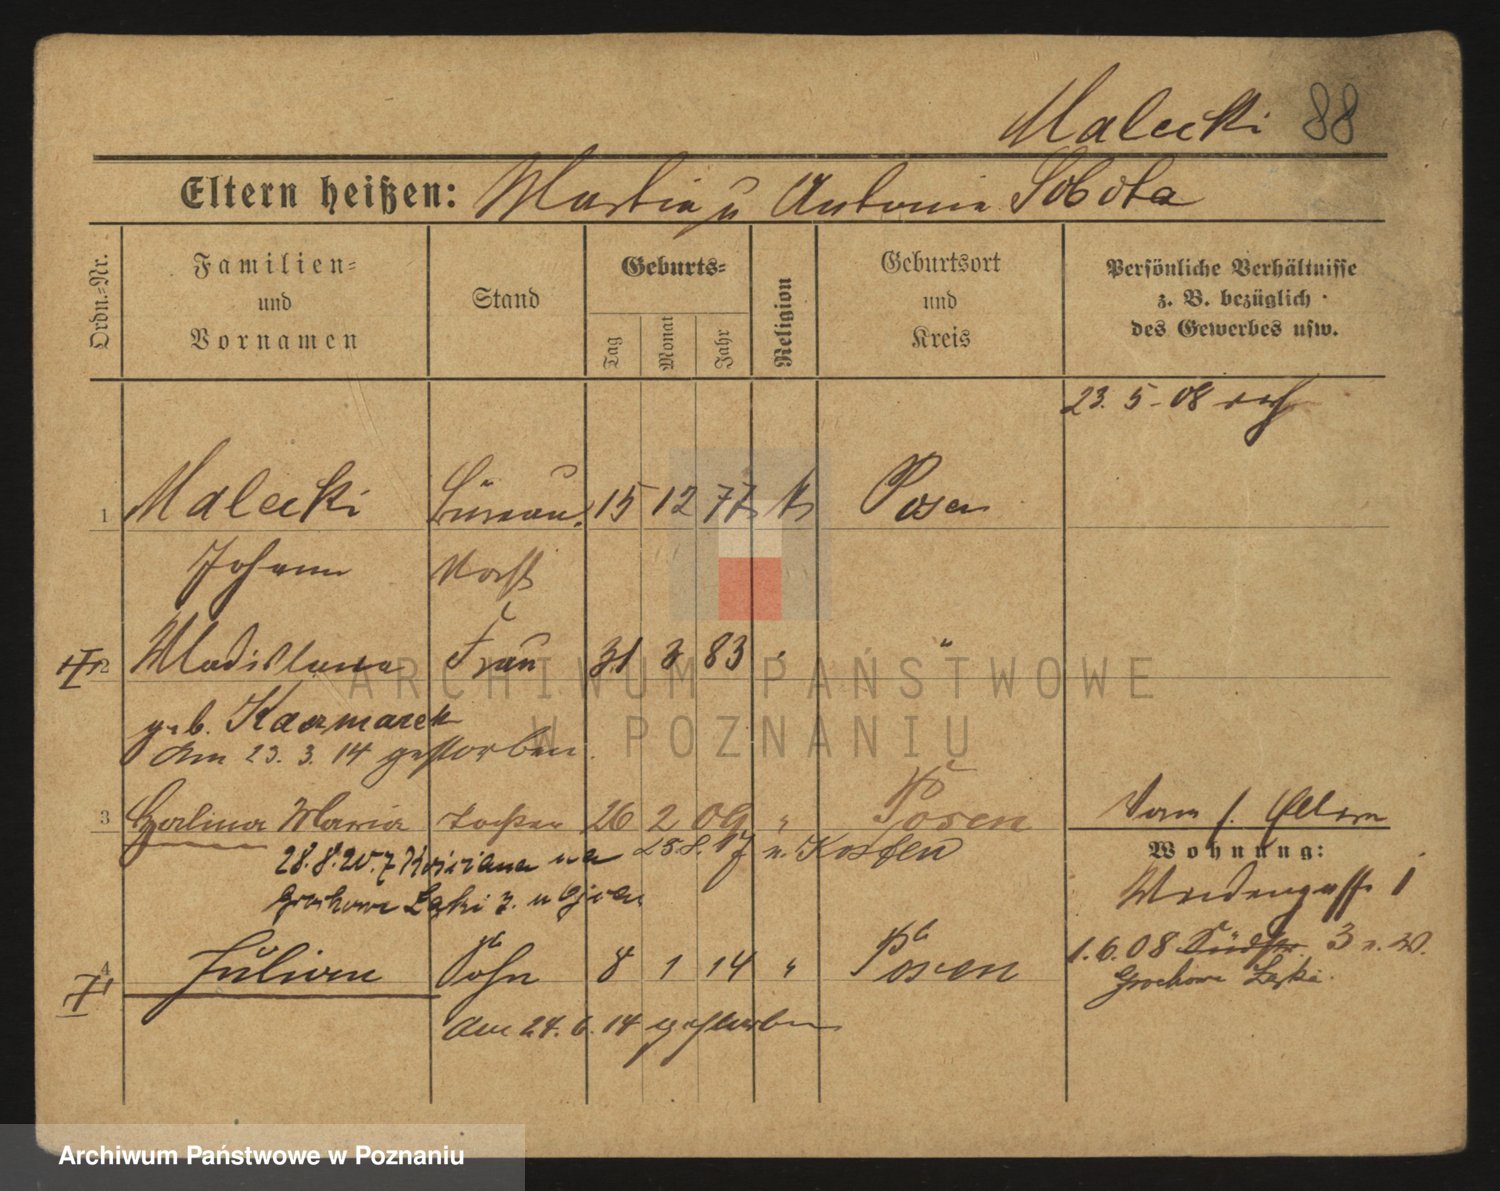 Malecki 88
Eltern heißen: Martin u Antonie Sobota
Ordn.-Nr.
Familien- und Vornamen
Stand
Geburts-
Tag
Monat
Jahr
Religion
Geburtsort und Kreis
Persönliche Verhältnisse
z. B. bezüglich
des Gewerbes usw.
23. 5. 08
1 Malecki Büreau. 15 12 77 k Posen
Johann
2 Wladislawa Frau 31 3 83 " "
geb. Kaczmarek
Am 23. 3. 14 gestorben
3 Halina Maria Tochter 26 2 09 " Posen
Vom f. Eltern
Wohnung:
28.8.20. z Kościana na 25.8.17 n. Kosten
Grochowe Łąki 3. u Ojca
Weidengasse 1
4 Julian Sohn 8 1 14 " Posen
1.6.08 Südstr. 3 n. 20.
Grochowe Łąki
Am 24. 6. 14 gestorben
ARCHIWUM PAŃSTWOWE
W POZNANIU
Archiwum Państwowe w Poznaniu